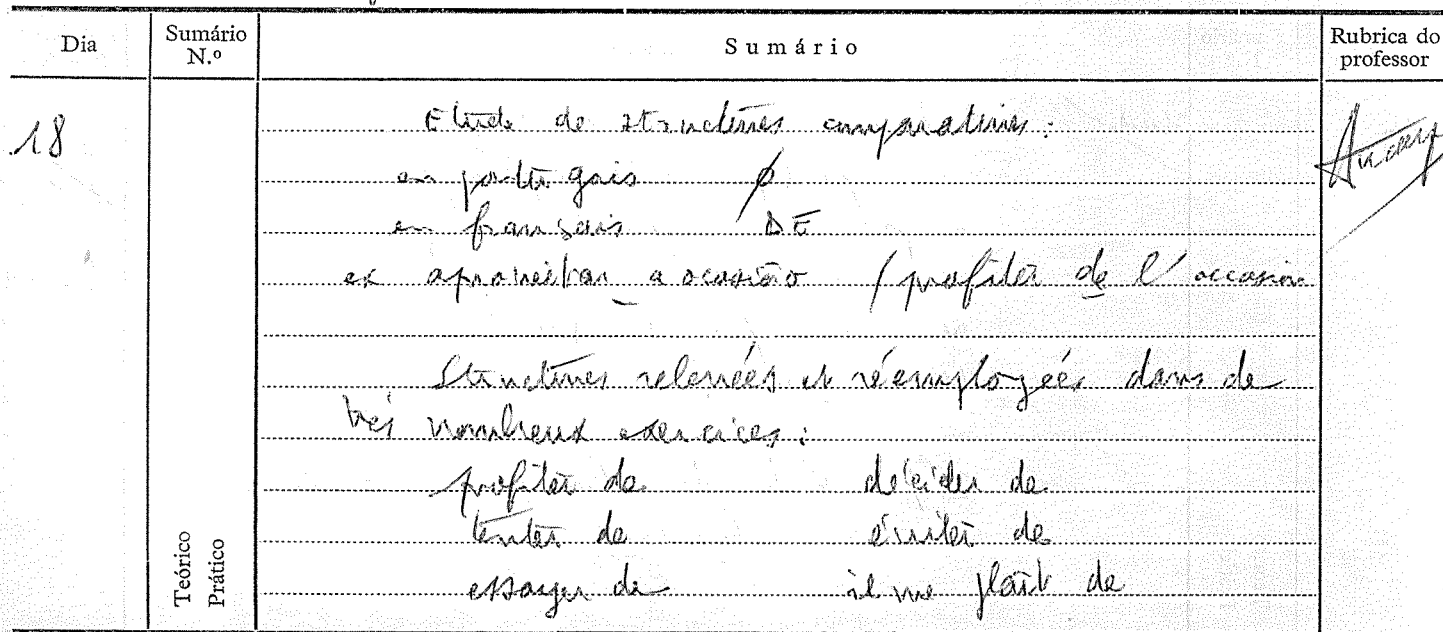 Dia
Sumário N.º
Sumário
Rubrica do professor
18
Etude de structures comparatives :
en portugais ∅
en français DE
ex aproveitar _ a ocasião / profiter de l'occasion
Structures relevées et réemployées dans de
très nombreux exercices :
profiter de décider de
tenter de éviter de
essayer de il me plaît de
Teórico
Prático